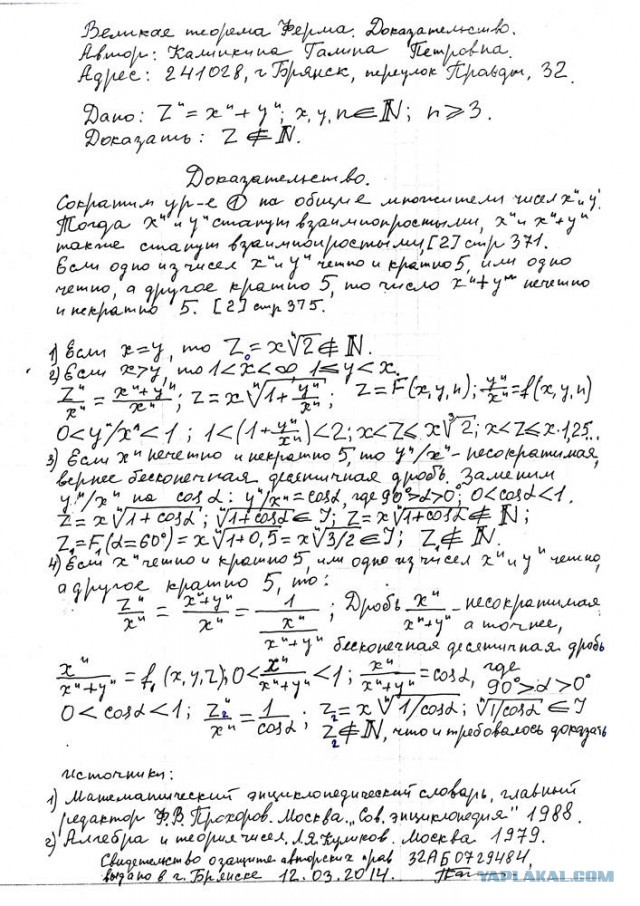 Великая теорема Ферма. Доказательство.
Автор: Калинкина Галина Петровна.
Адрес: 241028, г Брянск, переулок Правды, 32.
Дано: Zⁿ = xⁿ + yⁿ; x, y, n ∈ ℕ; n ⩾ 3.
Доказать: Z ∉ ℕ.
Доказательство.
Сократим ур-е ① на общие множители чисел xⁿ и yⁿ.
Тогда xⁿ и yⁿ станут взаимнопростыми, xⁿ и xⁿ+yⁿ
также станут взаимнопростыми, [2] стр 371.
Если одно из чисел xⁿ и yⁿ четно и кратно 5, или одно
четно, а другое кратно 5, то число xⁿ+yⁿ нечетно
и некратно 5. [2] стр 375.
1) Если x=y, то Z₀ = x ⁿ√2 ∉ ℕ.
2) Если x>y, то 1<x<∞, 1⩽y<x.
Zⁿ/xⁿ = (xⁿ+yⁿ)/xⁿ; Z = x ⁿ√(1+yⁿ/xⁿ); Z = F(x,y,n); yⁿ/xⁿ = f(x,y,n)
0<yⁿ/xⁿ<1; 1<(1+yⁿ/xⁿ)<2; x<Z⩽x ³√2; x<Z⩽x·1,25...
3) Если xⁿ нечетно и некратно 5, то yⁿ/xⁿ - несократимая,
вернее бесконечная десятичная дробь. Заменим
yⁿ/xⁿ на cos α: yⁿ/xⁿ = cos α, где 90°>α>0°; 0<cos α<1.
Z = x ⁿ√(1+cos α); ⁿ√(1+cos α) ∈ J; Z = x ⁿ√(1+cos α) ∉ ℕ;
Z₁ = F₁(α=60°) = x ⁿ√(1+0,5) = x ⁿ√(3/2) ∈ J; Z₁ ∉ ℕ.
4) Если xⁿ четно и кратно 5, или одно из чисел xⁿ и yⁿ четно,
а другое кратно 5, то:
Zⁿ/xⁿ = (xⁿ+yⁿ)/xⁿ = 1/(xⁿ/(xⁿ+yⁿ)); Дробь xⁿ/(xⁿ+yⁿ) - несократимая
а точнее,
бесконечная десятичная дробь
xⁿ/(xⁿ+yⁿ) = f₁(x,y,z); 0<xⁿ/(xⁿ+yⁿ)<1; xⁿ/(xⁿ+yⁿ) = cos α, где
90°>α>0°
0<cos α<1; Z₂ⁿ/xⁿ = 1/cos α; Z₂ = x ⁿ√(1/cos α); ⁿ√(1/cos α) ∈ J
Z₂ ∉ ℕ, что и требовалось доказать
Источники:
1) Математический энциклопедический словарь, главный
редактор Ю.В. Прохоров. Москва. „Сов. энциклопедия" 1988.
2) Алгебра и теория чисел. Л.Я. Куликов. Москва 1979.
Свидетельство о защите авторских прав 32АБ 0729484,
выдано в г. Брянске 12.03.2014.
YAPLAKAL.COM